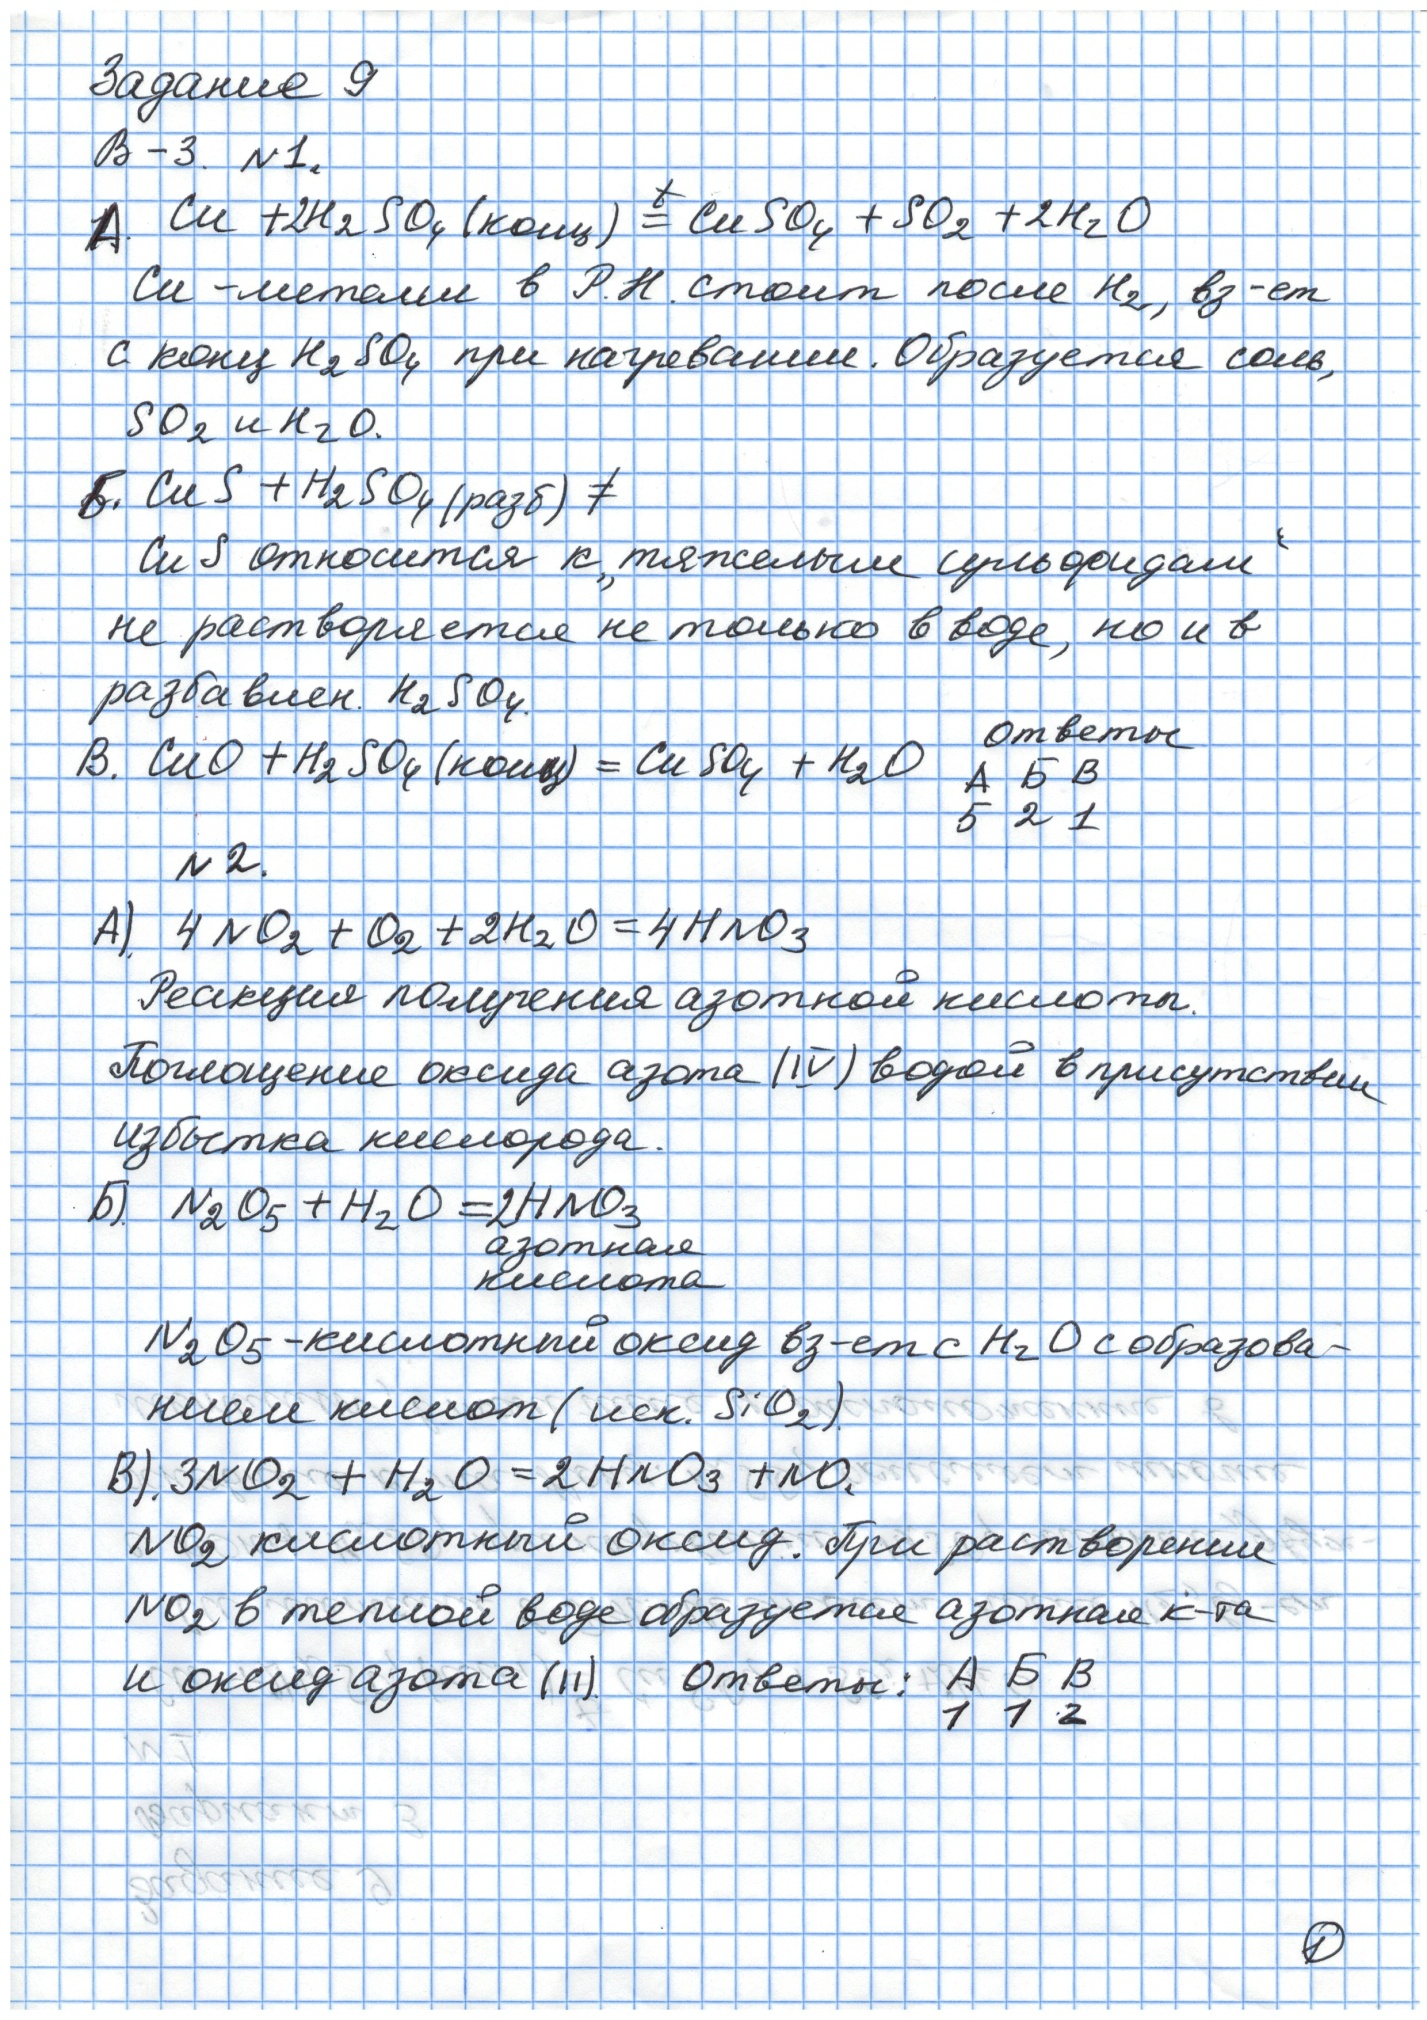 Задание 9
В-3. N1.
А. Cu + 2H2SO4 (конц) t= CuSO4 + SO2 + 2H2O
Cu - металл в Р.Н. стоит после H2, вз-ет
с конц H2SO4 при нагревании. Образуется соль,
SO2 и H2O.
Б. CuS + H2SO4 (разб) ≠
CuS относится к „тяжелым сульфидам“
не растворяется не только в воде, но и в
разбавлен. H2SO4.
В. CuO + H2SO4 (конц) = CuSO4 + H2O
ответы
А Б В
5 2 1
N2.
А). 4NO2 + O2 + 2H2O = 4HNO3
Реакция получения азотной кислоты.
Поглощение оксида азота (IV) водой в присутствии
избытка кислорода.
Б). N2O5 + H2O = 2HNO3
азотная
кислота
N2O5 - кислотный оксид вз-ет с H2O с образова-
нием кислот (иск. SiO2).
В). 3NO2 + H2O = 2HNO3 + NO.
NO2 кислотный оксид. При растворении
NO2 в теплой воде образуется азотная к-та
и оксид азота (II). Ответы: А Б В
1 1 2
1